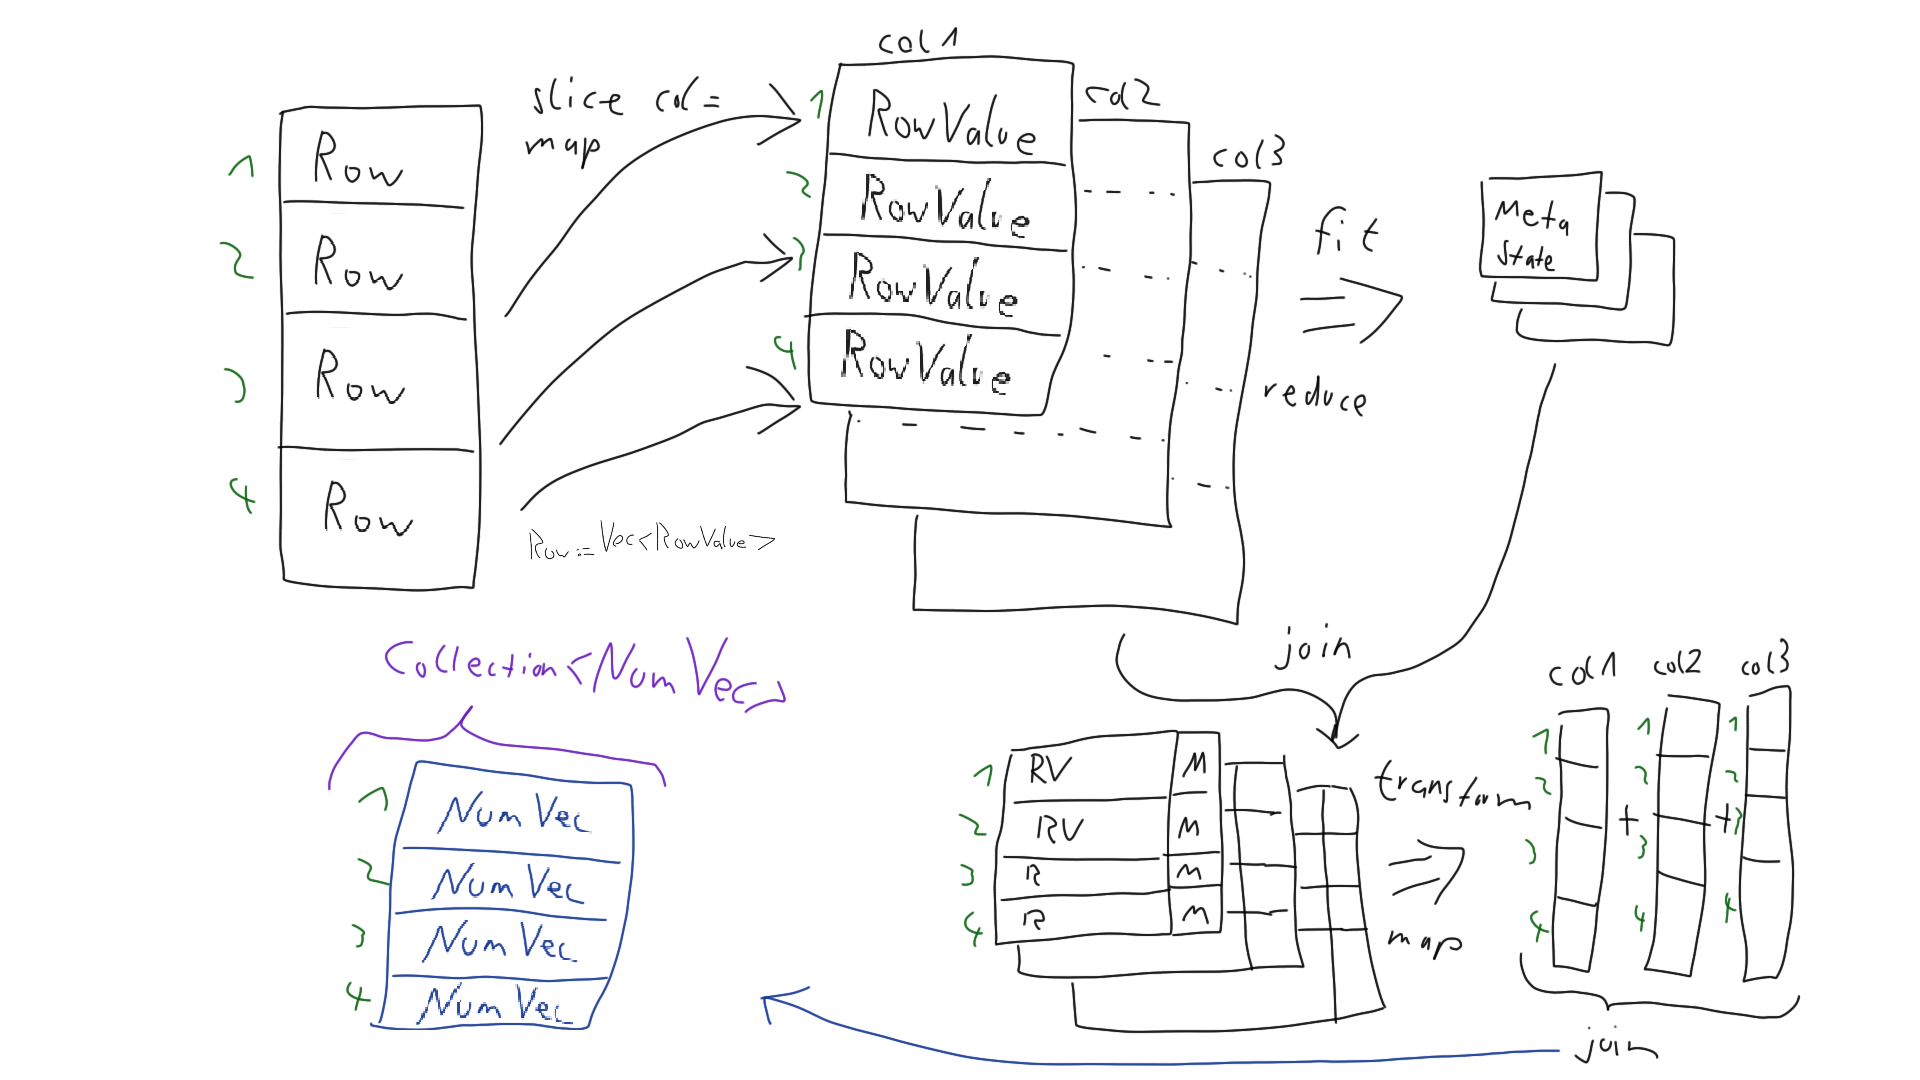 slice col =
map
1 Row
2 Row
3 Row
4 Row
Row := Vec<RowValue>
col1
1 RowValue
2 RowValue
3 RowValue
4 RowValue
col2
col3
fit
reduce
Meta
State
join
1 RV M
2 RV M
3 R M
4 R M
transform
map
col1 col2 col3
1 1 1
2 2 2
+ +
3 3 3
4 4 4
join
Collection<NumVec>
1 NumVec
2 NumVec
3 NumVec
4 NumVec